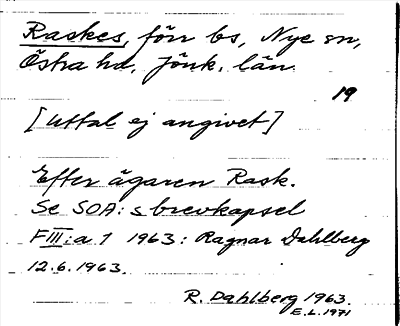 Raskes, förr bs, Nye sn,
Östra hd, Jönk. län.
19
[uttal ej angivet]
Efter ägaren Rask.
Se SOA:s brevkapsel
FIII:a 1 1963: Ragnar Dahlberg
12.6.1963.
R. Dahlberg 1963.
E.L. 1971